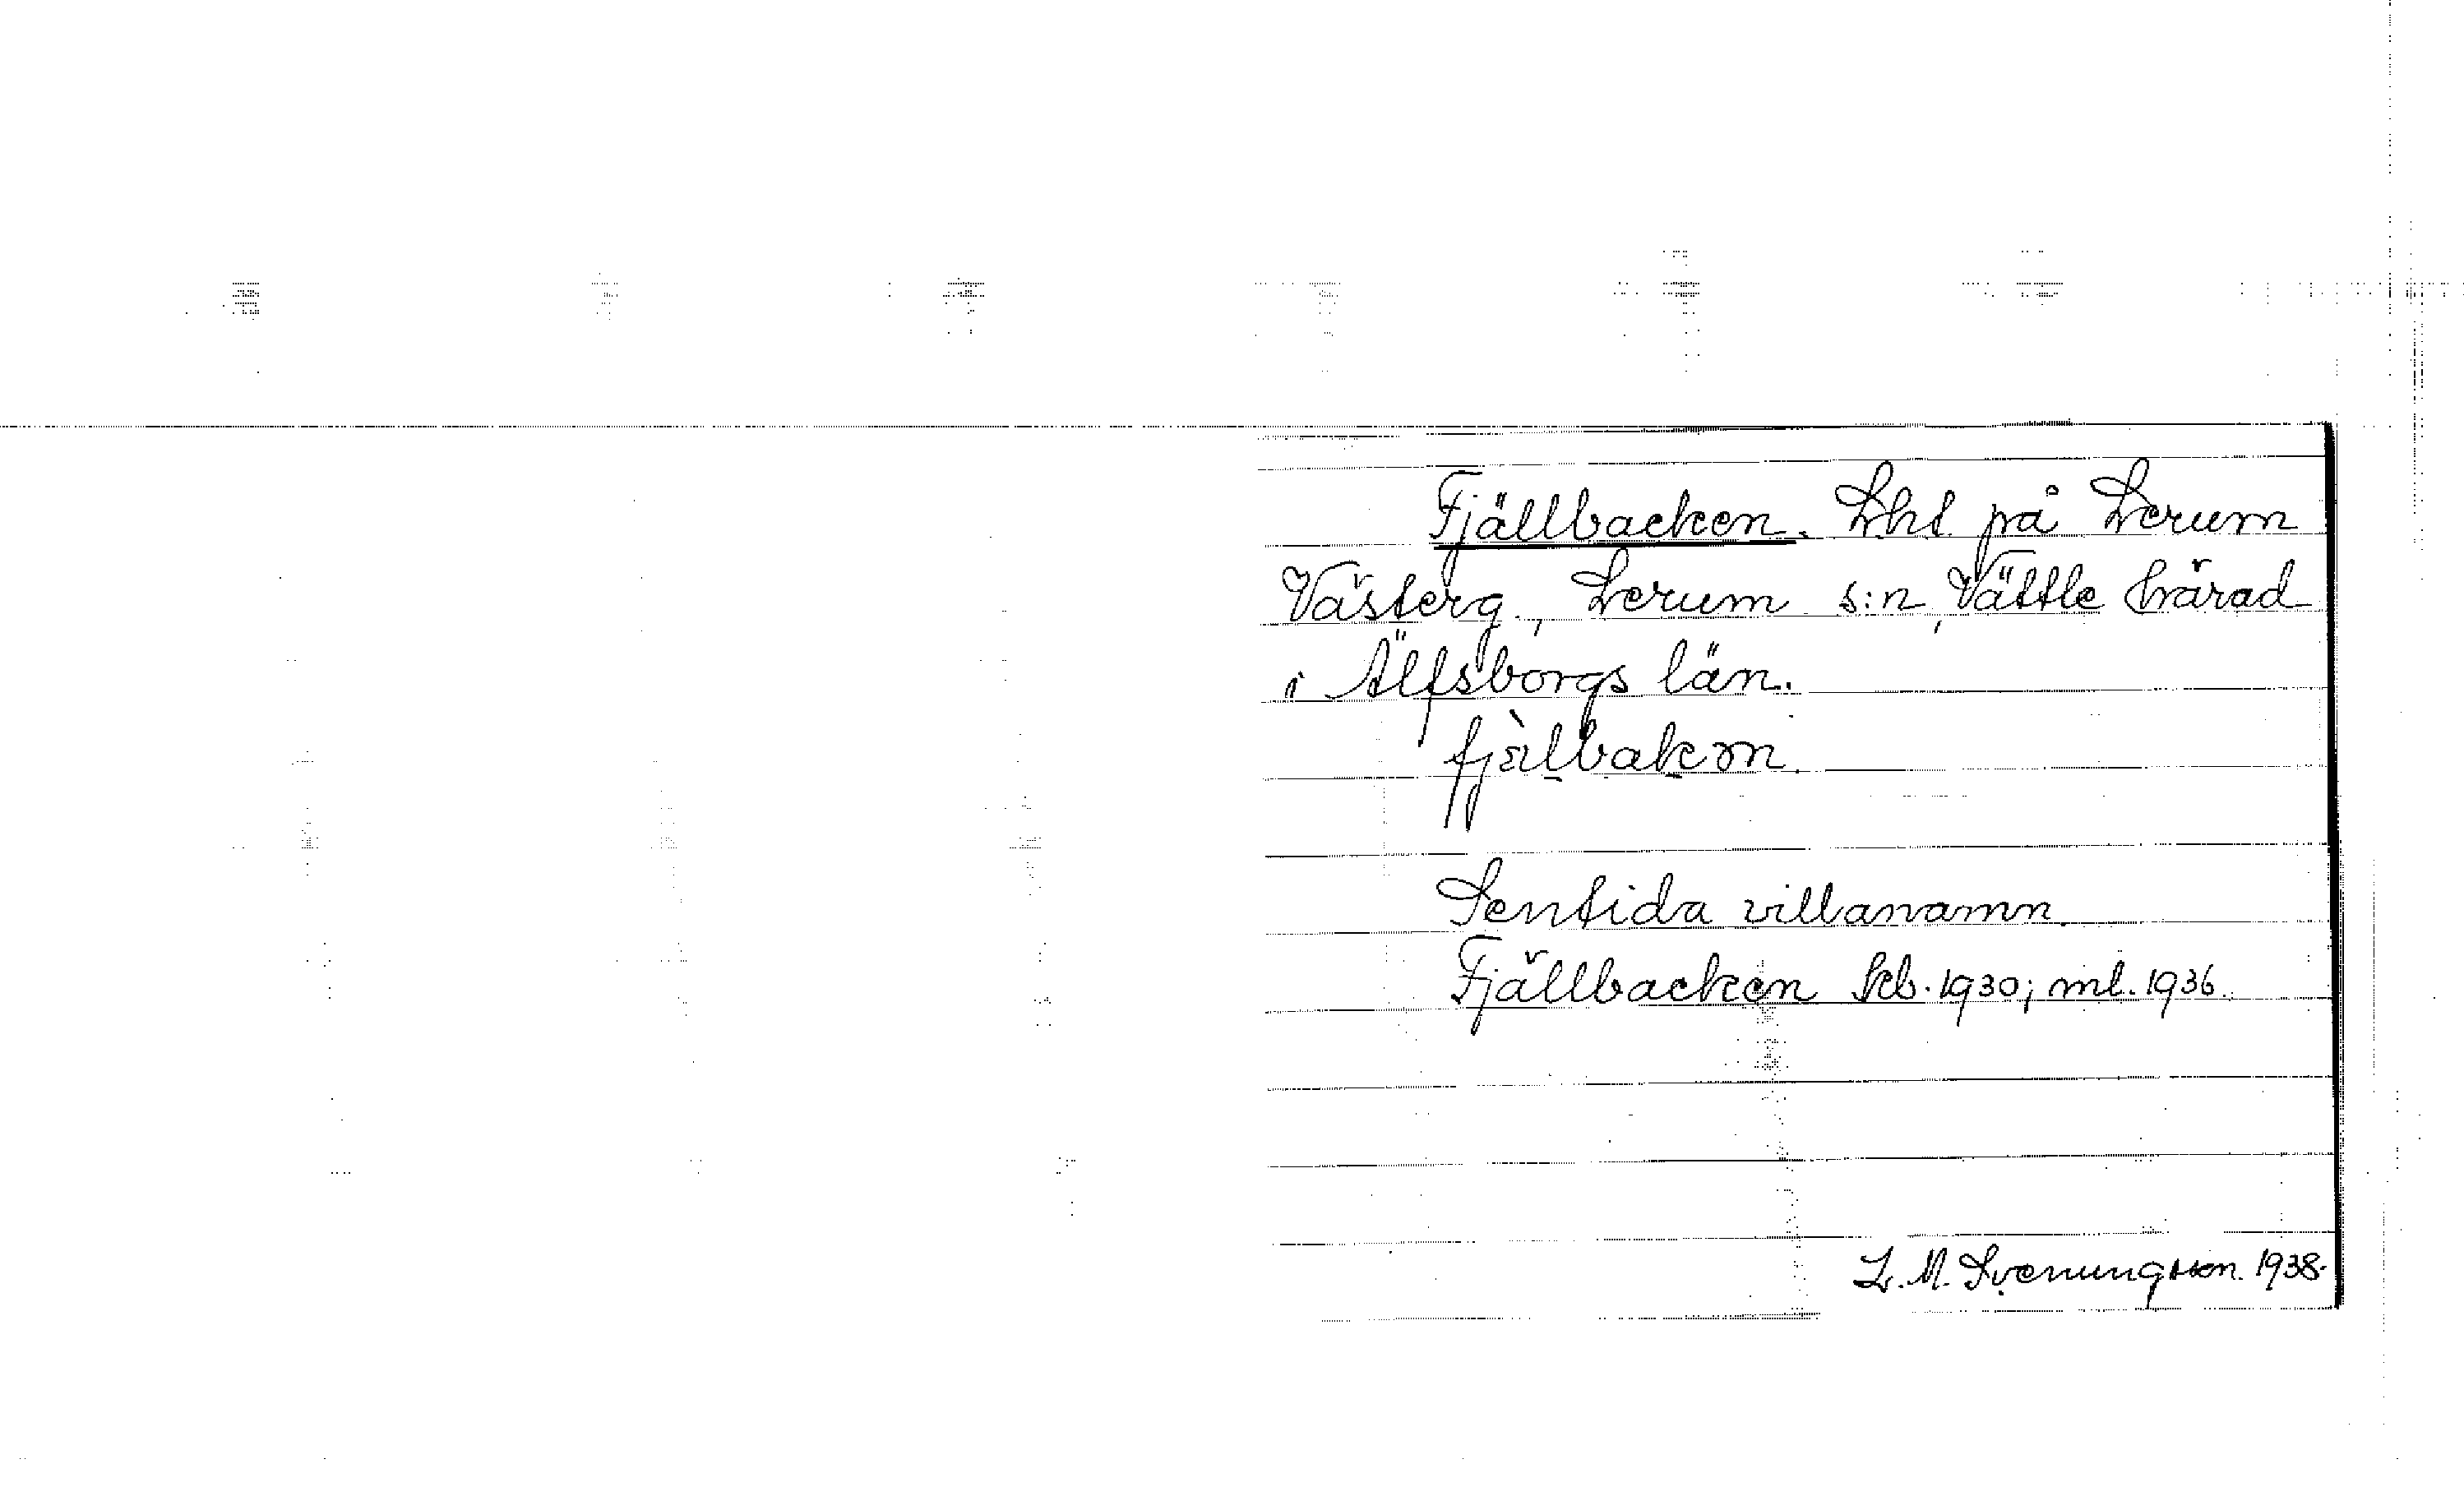 Fjällbacken. Lht på Lerum
Västerg., Lerum s:n, Vättle härad
i Älfsborgs län.
Sentida villanamn.
Fjällbacken kb. 1930; ml. 1936.
L. M. Svenungsson. 1938.